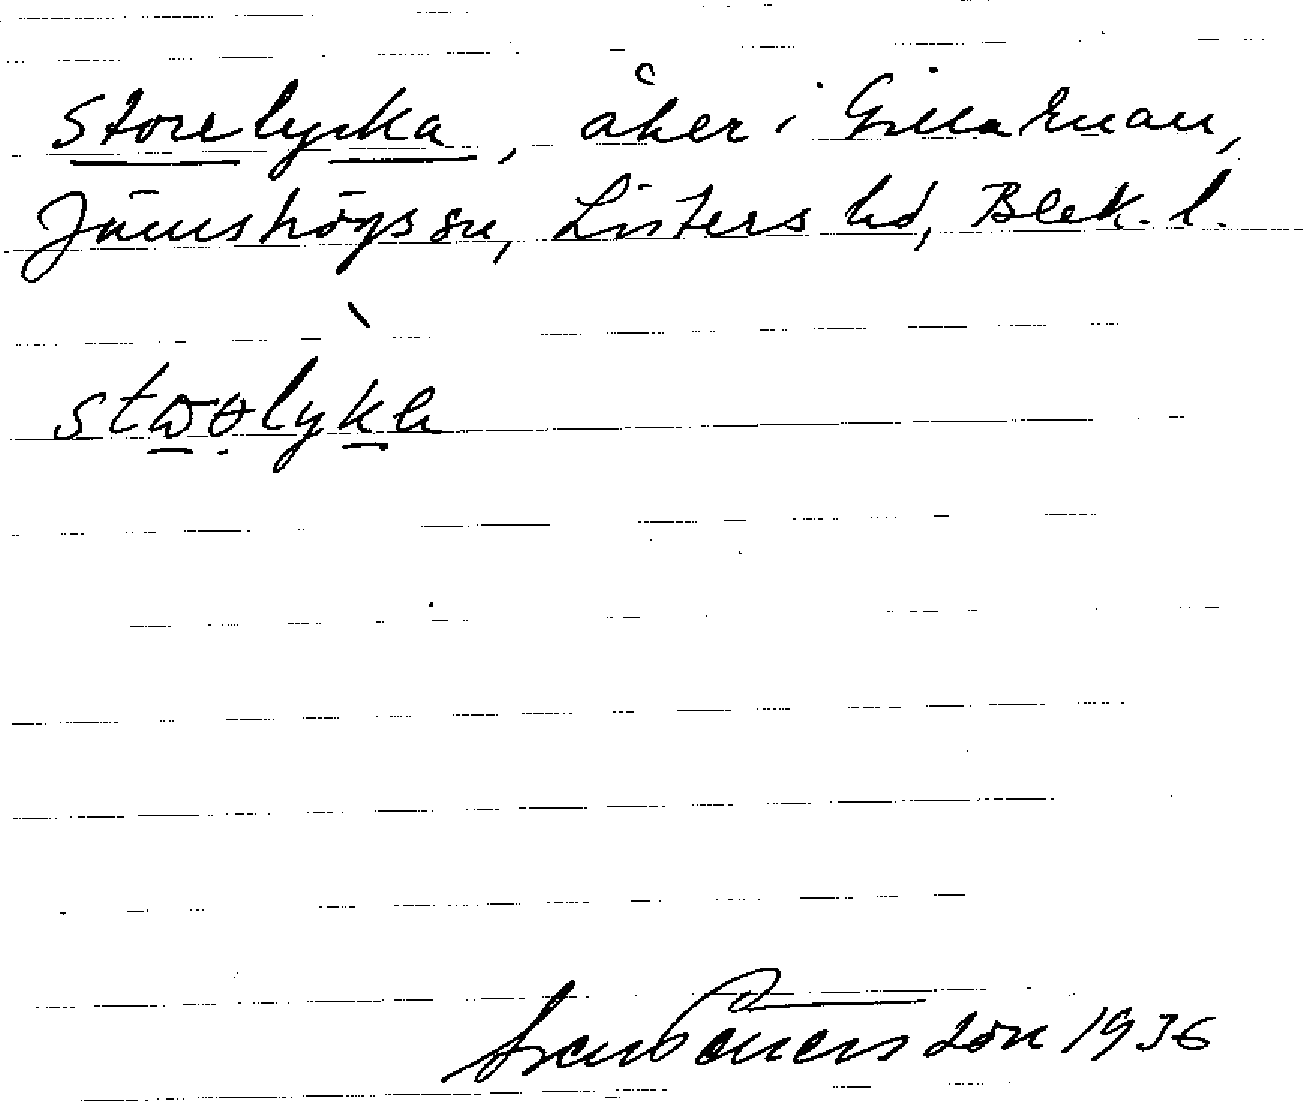 Storelycka, åker i Gillakman,
Jämshögs sn, Listers hd, Blek. l.
Sven Benson 1936